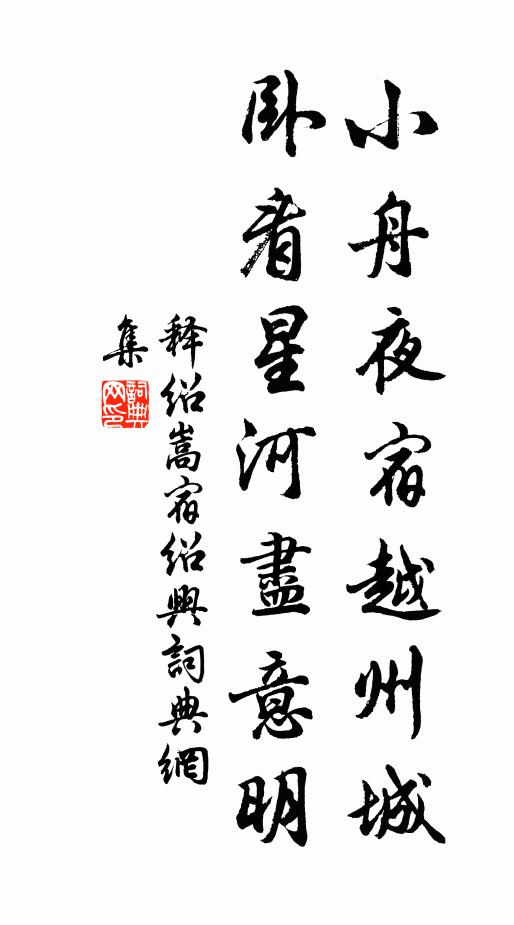 小舟夜宿越州城
卧看星河盡意明
释绍嵩宿绍興詞典網
集
詞典网印